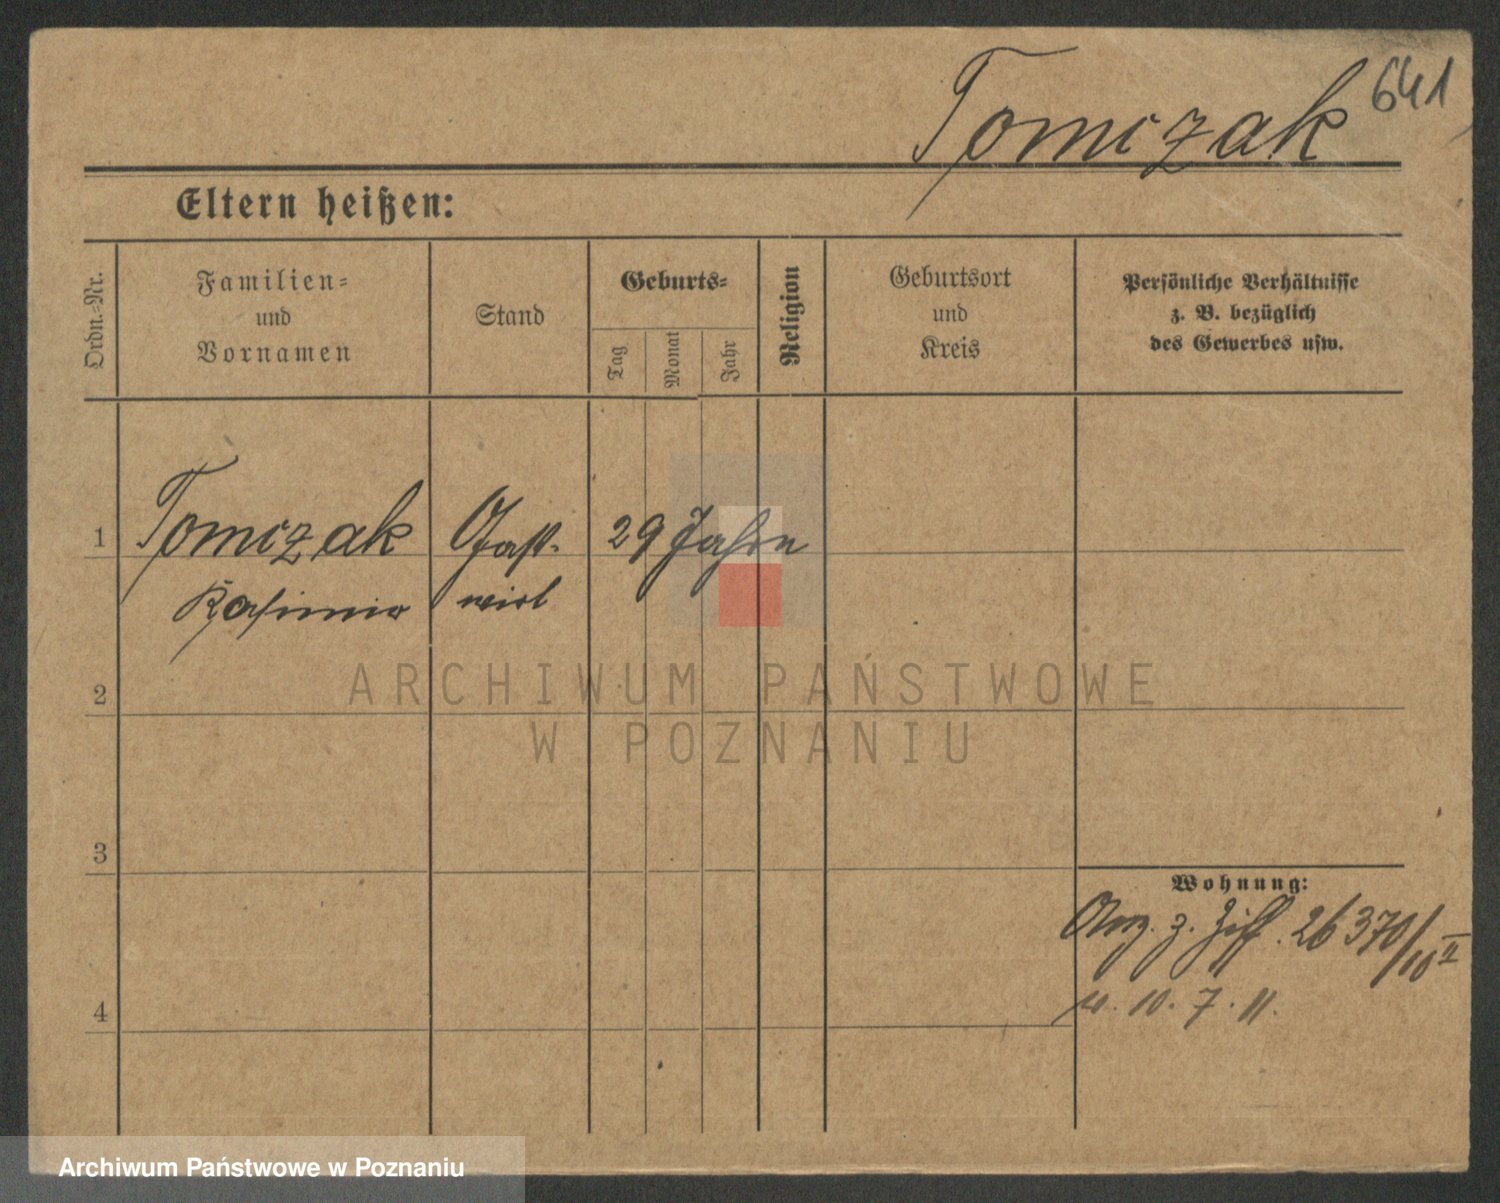 Tomczak 641
Eltern heißen:
Ordn.-Nr.
Familien-
und
Vornamen
Stand
Geburts-
Tag
Monat
Jahr
Religion
Geburtsort
und
Kreis
Persönliche Verhältnisse
z. B. bezüglich
des Gewerbes usw.
1 Tomczak Gast- 29 Jahre
Kasimir wirt
2
3
4
Wohnung:
Anz. z. Ziff. 26370/10 II
10. 7. 11.
ARCHIWUM PAŃSTWOWE
W POZNANIU
Archiwum Państwowe w Poznaniu